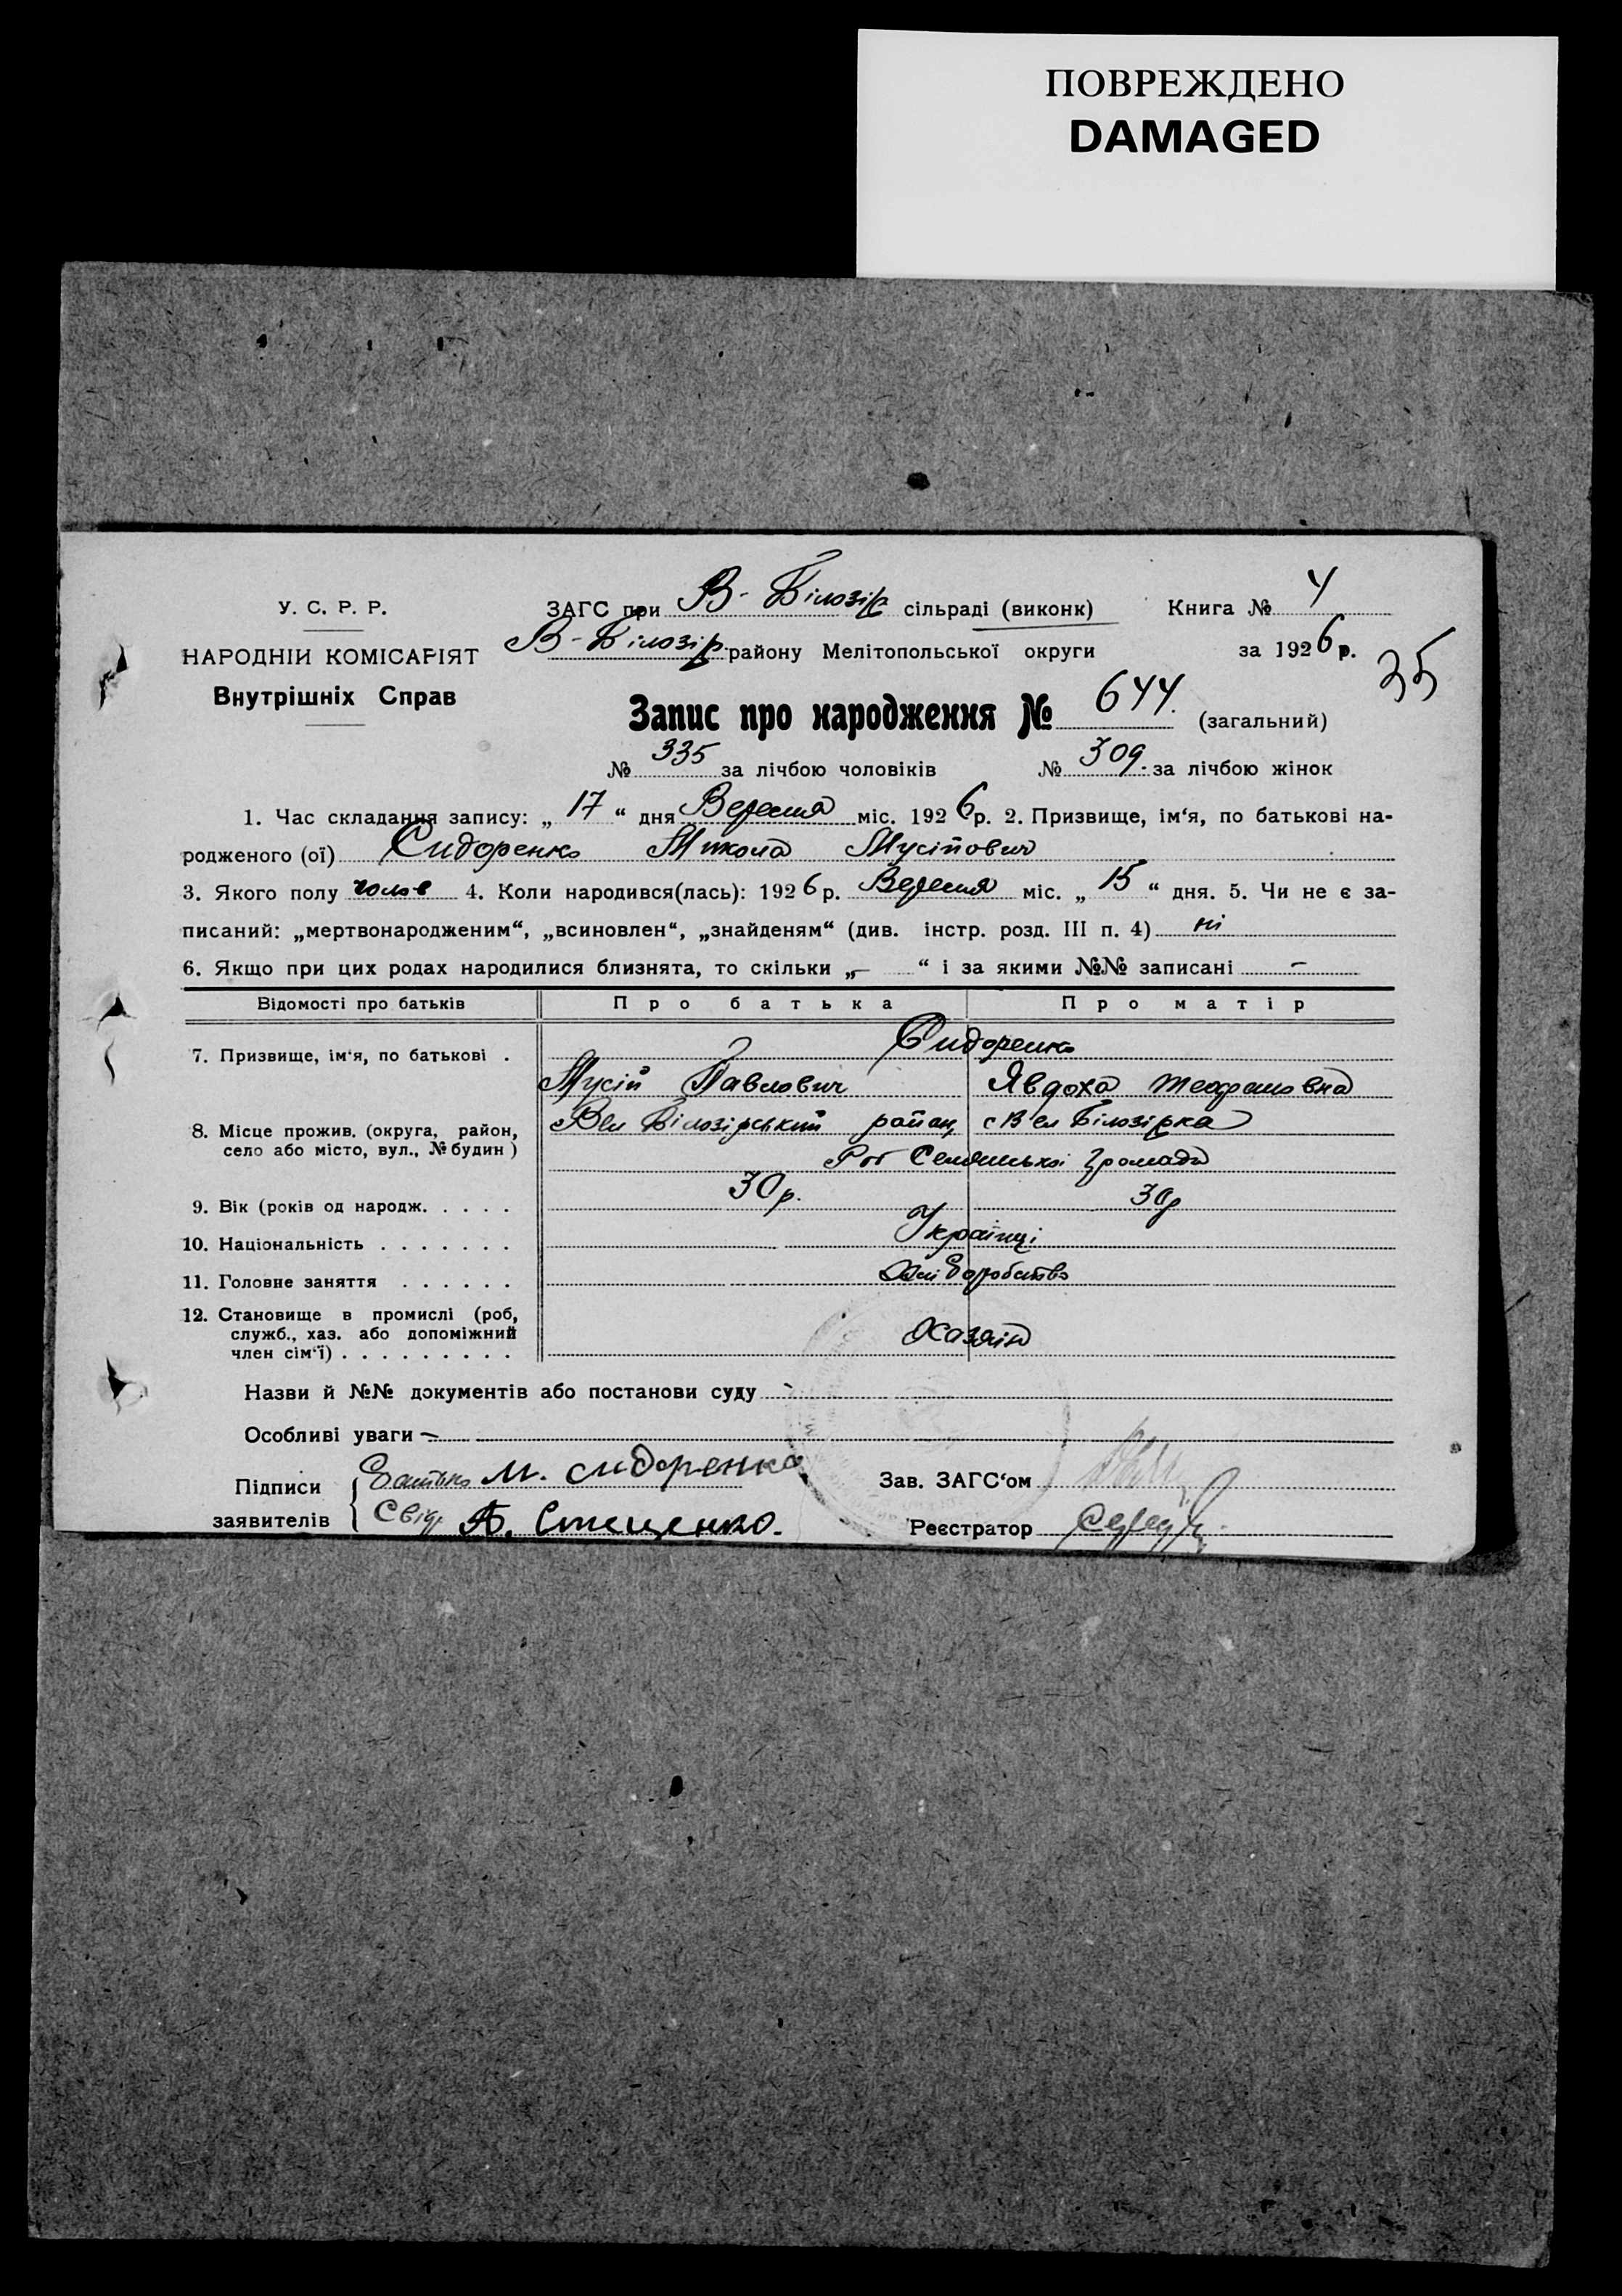 ПОВРЕЖДЕНО
DAMAGED
У. С. Р. Р.
ЗАГС при В-Білозір сільраді (виконк) Книга № 4
НАРОДНІЙ КОМІСАРІЯТ
В-Білозір. району Мелітопольської округи за 1926 р.
35
Внутрішніх Справ
Запис про народження № 644. (загальний)
№ 335 за лічбою чоловіків № 309. за лічбою жінок
1. Час складання запису: „ 17 “ дня Вересня міс. 1926 р. 2. Призвище, ім‘я, по батькові на-
родженого (ої) Сидоренко Микола Мусійович
3. Якого полу чолов 4. Коли народився(лась): 1926 р. Вересня міс. „ 15 “ дня. 5. Чи не є за-
писаний: „мертвонародженим“, „всиновлен“, „знайденям“ (див. інстр. розд. III п. 4) ні
6. Якщо при цих родах народилися близнята, то скільки „— “ і за якими №№ записані —
Відомості про батьків Про батька Про матір
Сидоренко
7. Призвище, ім‘я, по батькові .
Мусій Павлович Явдоха
Вел Білозірський район, с Вел Білозірка
8. Місце прожив. (округа, район,
село або місто, вул., № будин)
громада
9. Вік (років од народж. . . . . 30 р. 30 р
10. Національність . . . . . . . Українці
11. Головне заняття . . . . . . Хліборобство
12. Становище в промислі (роб,
служб., хаз. або допоміжний Хазяїн
член сім‘ї) . . . . . . . . .
Назви й №№ документів або постанови суду -
Особливі уваги —
Підписи Батько М. Сидоренко Зав. ЗАГС‘ом
заявителів Свід. Стеценко. Реєстратор